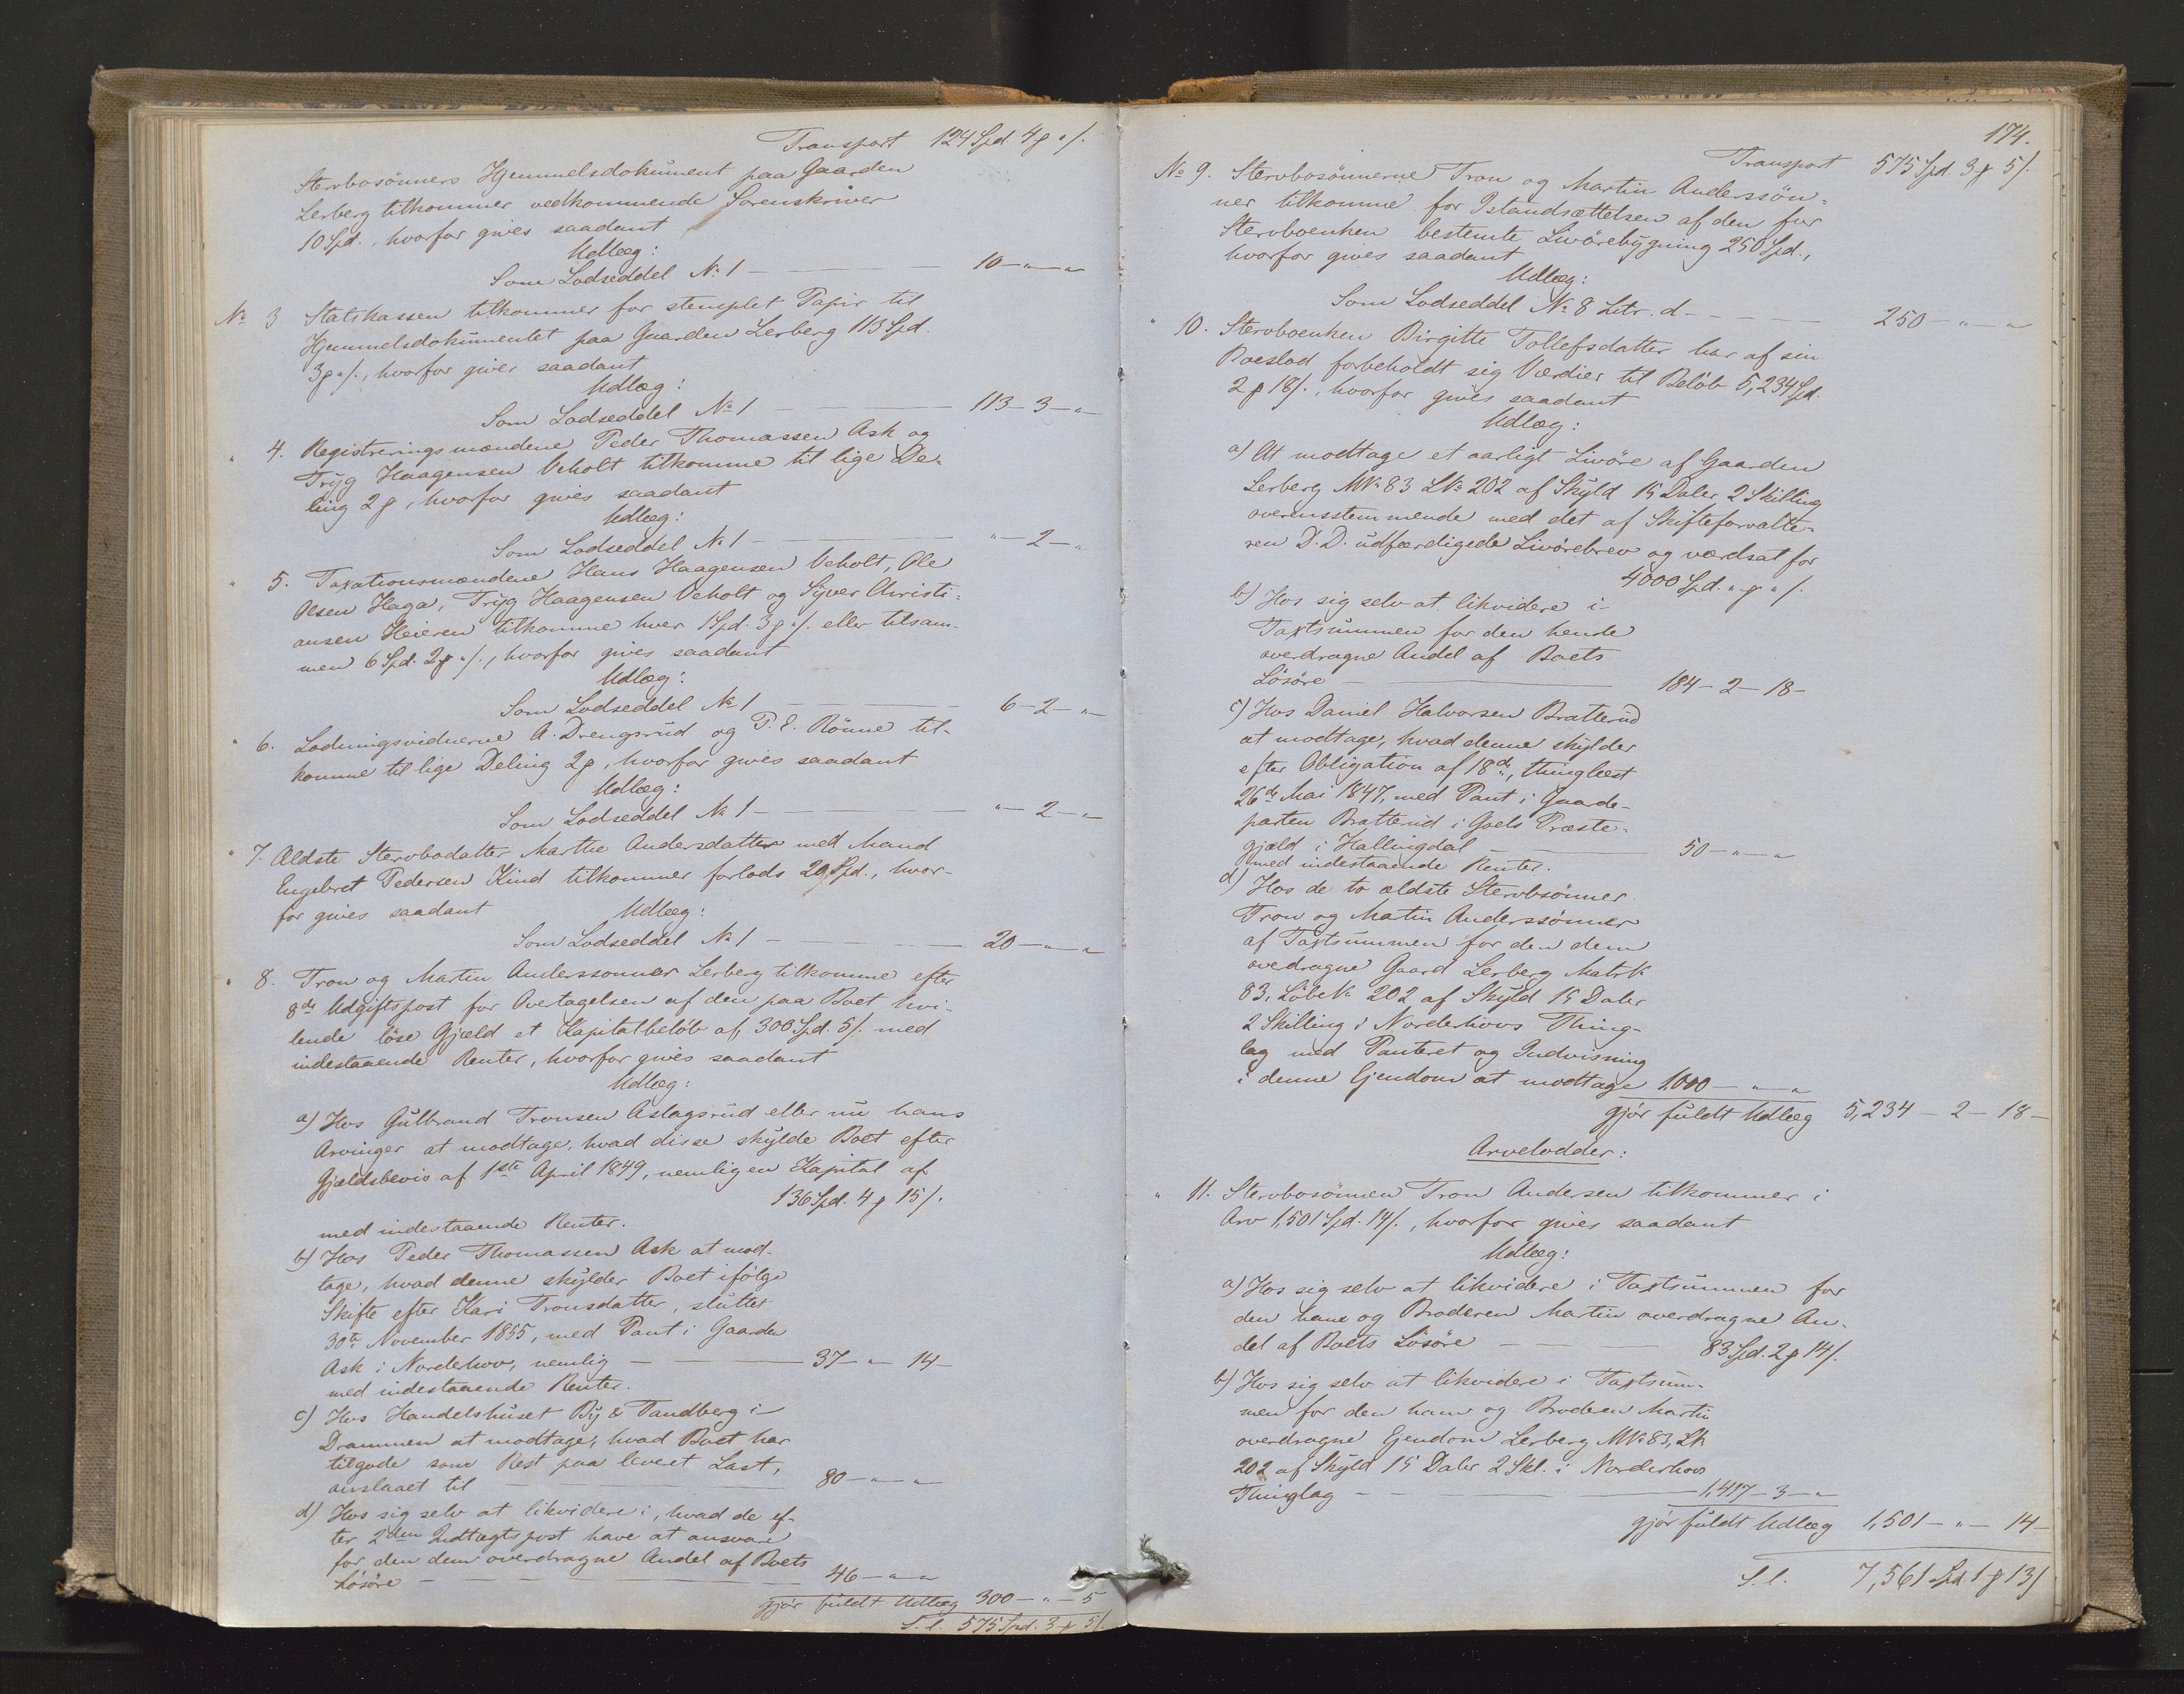 Transport 124 Spd. 4 ƒ " /.
Stervbosönners Hjemmelsdokument paa Gaarden
Lerberg tilkommer vedkommende Sorenskriver
10 Spd., hvorfor gives saadant
Udlæg:
Som Lodseddel № 1 — 10 — " — "
№ 3 Statskassen tilkommer for stemplet Papir til
Hjemmelsdokumentet paa Gaarden Lerberg 113 Spd.
3 ƒ " /., hvorfor gives saadant
Udlæg:
Som Lodseddel № 1 — 113 — 3 — "
" 4. Registreringsmændene Peder Thomassen Ask og
Tryg Haagensen Veholt tilkomme til lige De-
ling 2 ƒ, hvorfor gives saadant
Udlæg:
Som Lodseddel № 1 — " — 2 — "
" 5. Taxationsmændene Hans Haagensen Veholt, Ole
Olsen Haga, Tryg Haagensen Veholt og Syver Christi-
ansen Heieren tilkomme hver 1 Spd. 3 ƒ " /. eller tilsam-
men 6 Spd. 2 ƒ " /., hvorfor gives saadant
Udlæg:
Som Lodseddel № 1 — 6 — 2 — "
" 6. Lodningsvidnerne A. Drengsrud og P. E. Rönne til-
komme til lige Deling 2 ƒ, hvorfor gives saadant
Udlæg:
Som Lodseddel № 1 — " — 2 — "
" 7. Ældste Stervbodatter Marthe Andersdatter med Mand
Engebret Pedersen Kind tilkommer forlods 20 Spd., hvor-
for gives saadant Udlæg:
Som Lodseddel № 1 — 20 — " — "
" 8. Tron og Martin Anderssonner Lerberg tilkomme efter
8de Udgiftspost for Overtagelsen af den paa Boet hvi-
lende löse Gjæld et Kapitalbelöb af 300 Spd. 5 /. med
indestaaende Renter, hvorfor gives saadant
Udlæg:
a) Hos Gulbrand Tronsen Aslagsrud eller nu hans
Arvinger at modtage, hvad disse skylde Boet efter
Gjældsbevis af 1ste April 1849, nemlig en Kapital af
136 Spd. 4 ƒ 15 /.
med indestaaende Renter.
b) Hos Peder Thomassen Ask at mod-
tage, hvad denne skylder Boet ifölge
Skifte efter Kari Tronsdatter, sluttet
30te November 1855, med Pant i Gaarden
Ask i Norderhov, nemlig — 37 — " — 14 —
med indestaaende Renter.
c) Hos Handelshuset By & Tandberg i
Drammen at modtage, hvad Boet har
tilgode som Rest paa leveret Last,
anslaaet til — 80 — " — "
d) Hos sig selv at likvidere i, hvad de ef-
ter 2den Indtægtspost have at ansvare
for den dem overdragne Andel af Boets
Lösöre — 46 — " — "
gjör fuldt Udlæg 300 — " — 5
S. l. 575 Spd. 3 ƒ 5 /.
174.
Transport 575 Spd. 3 ƒ 5 /.
№ 9. Stervbosönnerne Tron og Martin Anderssön-
ner tilkomme for Istandsættelsen af den for
Stervboenken bestemte Livörebygning 250 Spd.,
hvorfor gives saadant
Udlæg:
Som Lodseddel № 8 Litr. d — 250 — " — "
" 10. Stervboenken Birgitte Tollefsdatter har af sin
Boeslod forbeholdt sig Værdier til Belöb 5,234 Spd.
2 ƒ 18 /., hvorfor gives saadant
Udlæg:
a) At modtage et aarligt Livöre af Gaarden
Lerberg M№ 83 L№ 202 af Skyld 15 Daler 2 Skilling
overensstemmende med det af Skifteforvalte-
ren D. D. udfærdigede Livörebrev og værdsat for
4000 Spd. " ƒ " /.
b) Hos sig selv at likvidere i
Taxtsummen for den hende
overdragne Andel af Boets
Lösöre — 184 — 2 — 18 —
c) Hos Daniel Halvorsen Bratterud
at modtage, hvad denne skylder
efter Obligation af 18de, thinglæst
26de Mai 1847, med Pant i Gaarde-
parten Bratterud i Goels Præste-
gjæld i Hallingdal — 50 — " — "
med indestaaende Renter.
d) Hos de to ældste Stervbosönner
Tron og Martin Anderssönner
af Taxtsummen for den dem
overdragne Gaard Lerberg Matr№
83, Löbe№ 202 af Skyld 15 Daler
2 Skilling i Norderhovs Thing-
lag med Panteret og Indvisning
i denne Ejendom at modtage 1,000 — " — "
gjör fuldt Udlæg 5,234 — 2 — 18 —
Arvelodder:
" 11. Stervbosönnen Tron Andersen tilkommer i
Arv 1,501 Spd. 14 /., hvorfor gives saadant
Udlæg:
a) Hos sig selv at likvidere i Taxtsummen for
den ham og Broderen Martin overdragne An-
del af Boets Lösöre — 83 Spd. 2 ƒ 14 /.
b) Hos sig selv at likvidere i Taxtsum-
men for den ham og Broderen Martin
overdragne Ejendom Lerberg M№ 83, L№
202 af Skyld 15 Daler 2 Skl. i Norderhovs
Thinglag — 1,417 — 3 — "
gjör fuldt Udlæg 1,501 — " — 14 —
S. l. 7,561 Spd. 1 ƒ 13 /